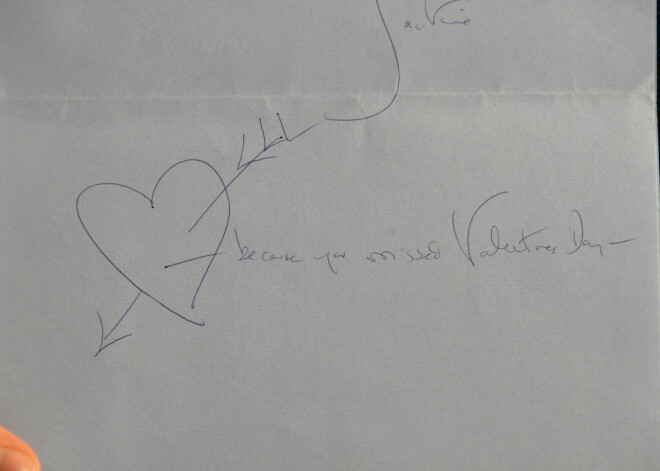 because you missed Valentines Day —